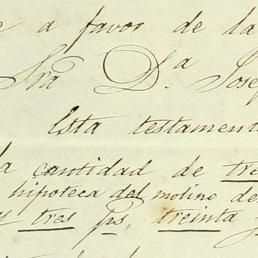 e a favor de la
Sra D.ª Josef
Esta testament
la cantidad de tre
hipoteca del molino de
y tres ps, treinta